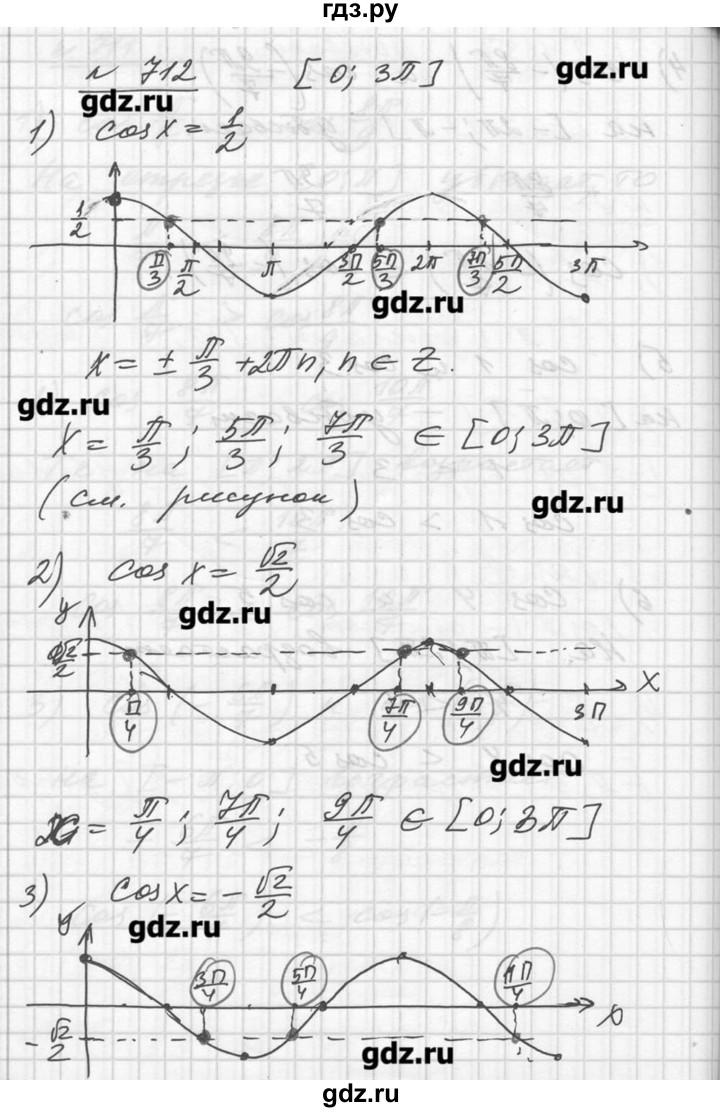 гдз.ру
№ 712 [0; 3П]
gdz.ru gdz.ru
1) cos x = 1/2
1/2
П/3 П/2 П 3П/2 5П/3 2П 7П/3 5П/2 3П
gdz.ru
x = ± П/3 + 2Пn, n ∈ Z.
gdz.ru
x = П/3 ; 5П/3 ; 7П/3 ∈ [0; 3П]
(см. рисунок) gdz.ru
2) cos x = √2/2
gdz.ru
y
√2/2
x
П/4 7П/4 9П/4 3П
gdz.ru
x = П/4 ; 7П/4 ; 9П/4 ∈ [0; 3П]
3) cos x = -√2/2
gdz.ru
y
3П/4 5П/4 11П/4
x
-√2/2
gdz.ru
gdz.ru